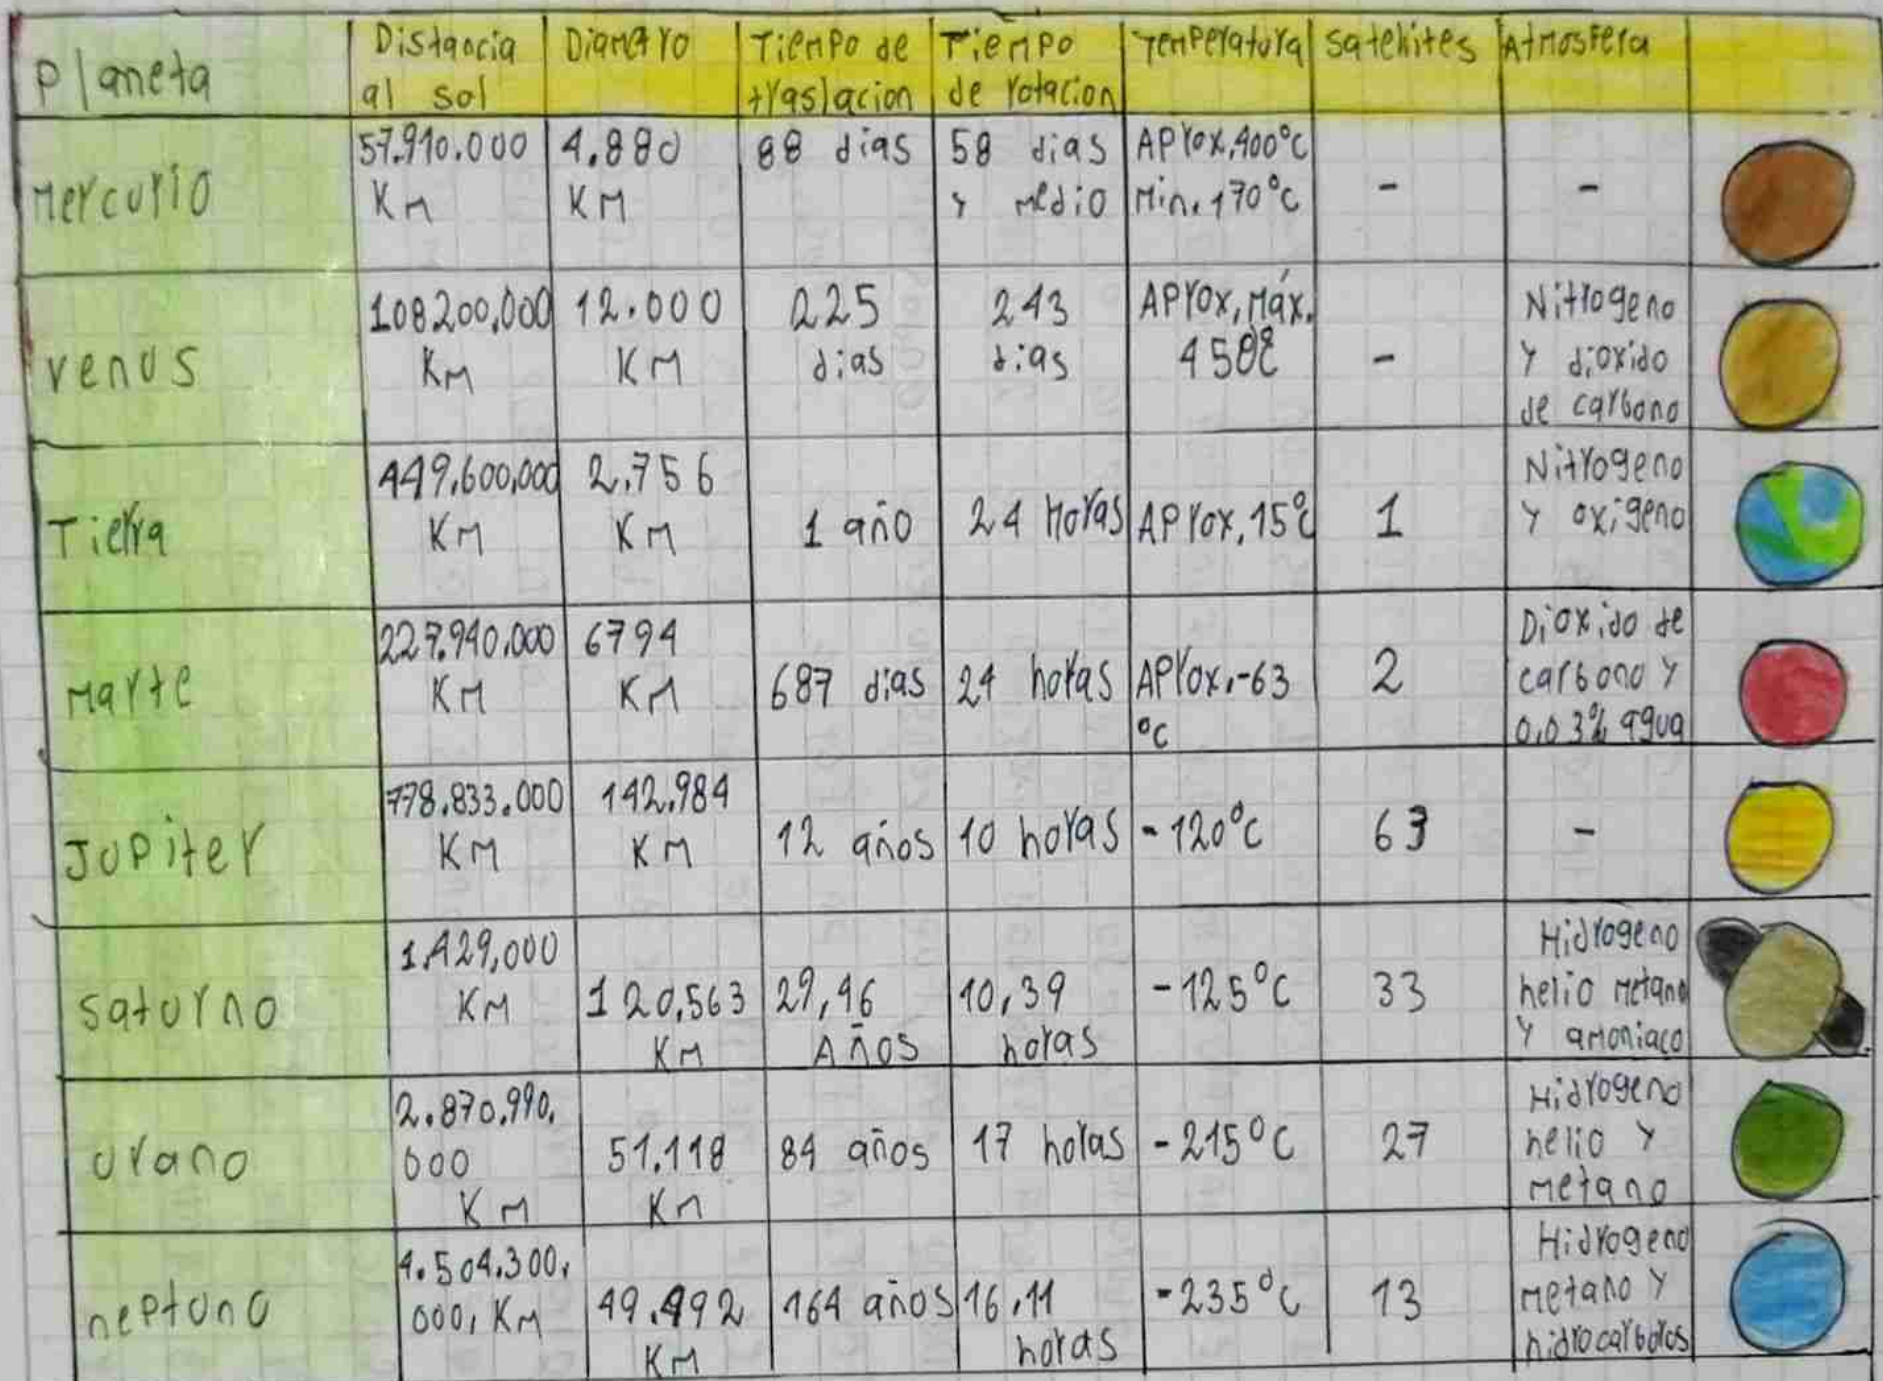 Planeta
Distancia al sol
Diametro
Tiempo de traslacion
Tiempo de rotacion
Temperatura
satelites
Atmosfera
Mercurio
57.910.000 KM
4.880 KM
88 dias
58 dias y medio
Aprox.400°C Min.170°C
-
-
venus
108200.000 KM
12.000 KM
225 dias
243 dias
Aprox, Máx. 450°C
-
Nitrogeno y dioxido de carbono
Tierra
449.600.000 KM
2.756 KM
1 año
24 Horas
Aprox, 15°C
1
Nitrogeno y oxigeno
Marte
227.940.000 KM
6794 KM
687 dias
24 horas
Aprox.-63 °C
2
Dioxido de carbono y 0.03% agua
Jupiter
778.833.000 KM
142.984 KM
12 años
10 horas
-120°C
63
-
saturno
1.429,000 KM
120.563 KM
29,46 Años
10,39 horas
-125°C
33
Hidrogeno helio metano y amoniaco
urano
2.870.990.000 KM
51.118 KM
84 años
17 horas
-215°C
27
Hidrogeno helio y metano
neptuno
4.504.300.000, KM
49.492 KM
164 años
16,11 horas
-235°C
13
Hidrogeno metano y hidrocarboros